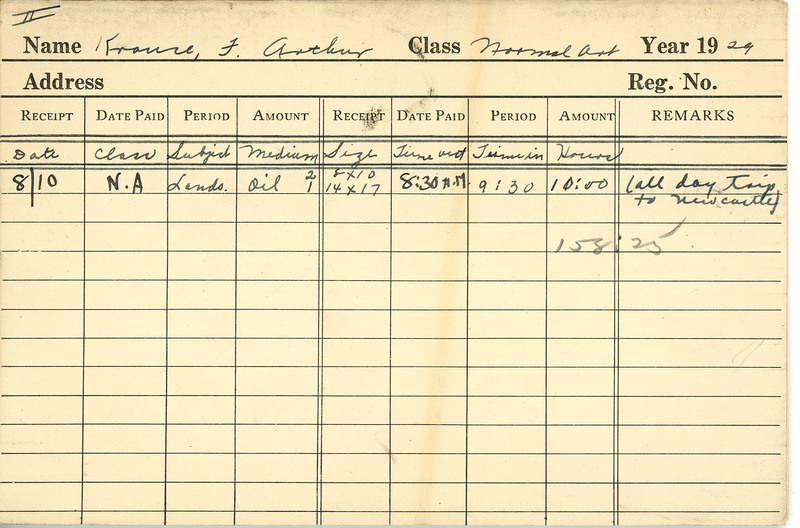 II
Name Krause, F. Arthur Class Normal Art Year 19 29
Address Reg. No.
RECEIPT DATE PAID PERIOD AMOUNT RECEIPT DATE PAID PERIOD AMOUNT REMARKS
Date Class Subject Medium Size Time out Time in Hours
8/10 N.A Lands. Oil 2 8x10 8:30 A.M. 9:30 10:00 (all day trip
1 14x17 to Newcastle)
158:25